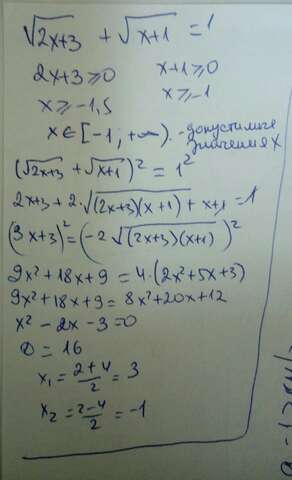 √2x+3 + √x+1 = 1
2x+3 ≥ 0 x+1 ≥ 0
x ≥ -1,5 x ≥ -1
x ∈ [-1; +∞). - допустимые
значения x
(√2x+3 + √x+1)² = 1²
2x+3 + 2·√(2x+3)(x+1) + x+1 = 1
(3x+3)² = (-2√(2x+3)(x+1))²
9x² + 18x + 9 = 4·(2x² + 5x + 3)
9x² + 18x + 9 = 8x² + 20x + 12
x² - 2x - 3 = 0
D = 16
x₁ = 2+4/2 = 3
x₂ = 2-4/2 = -1